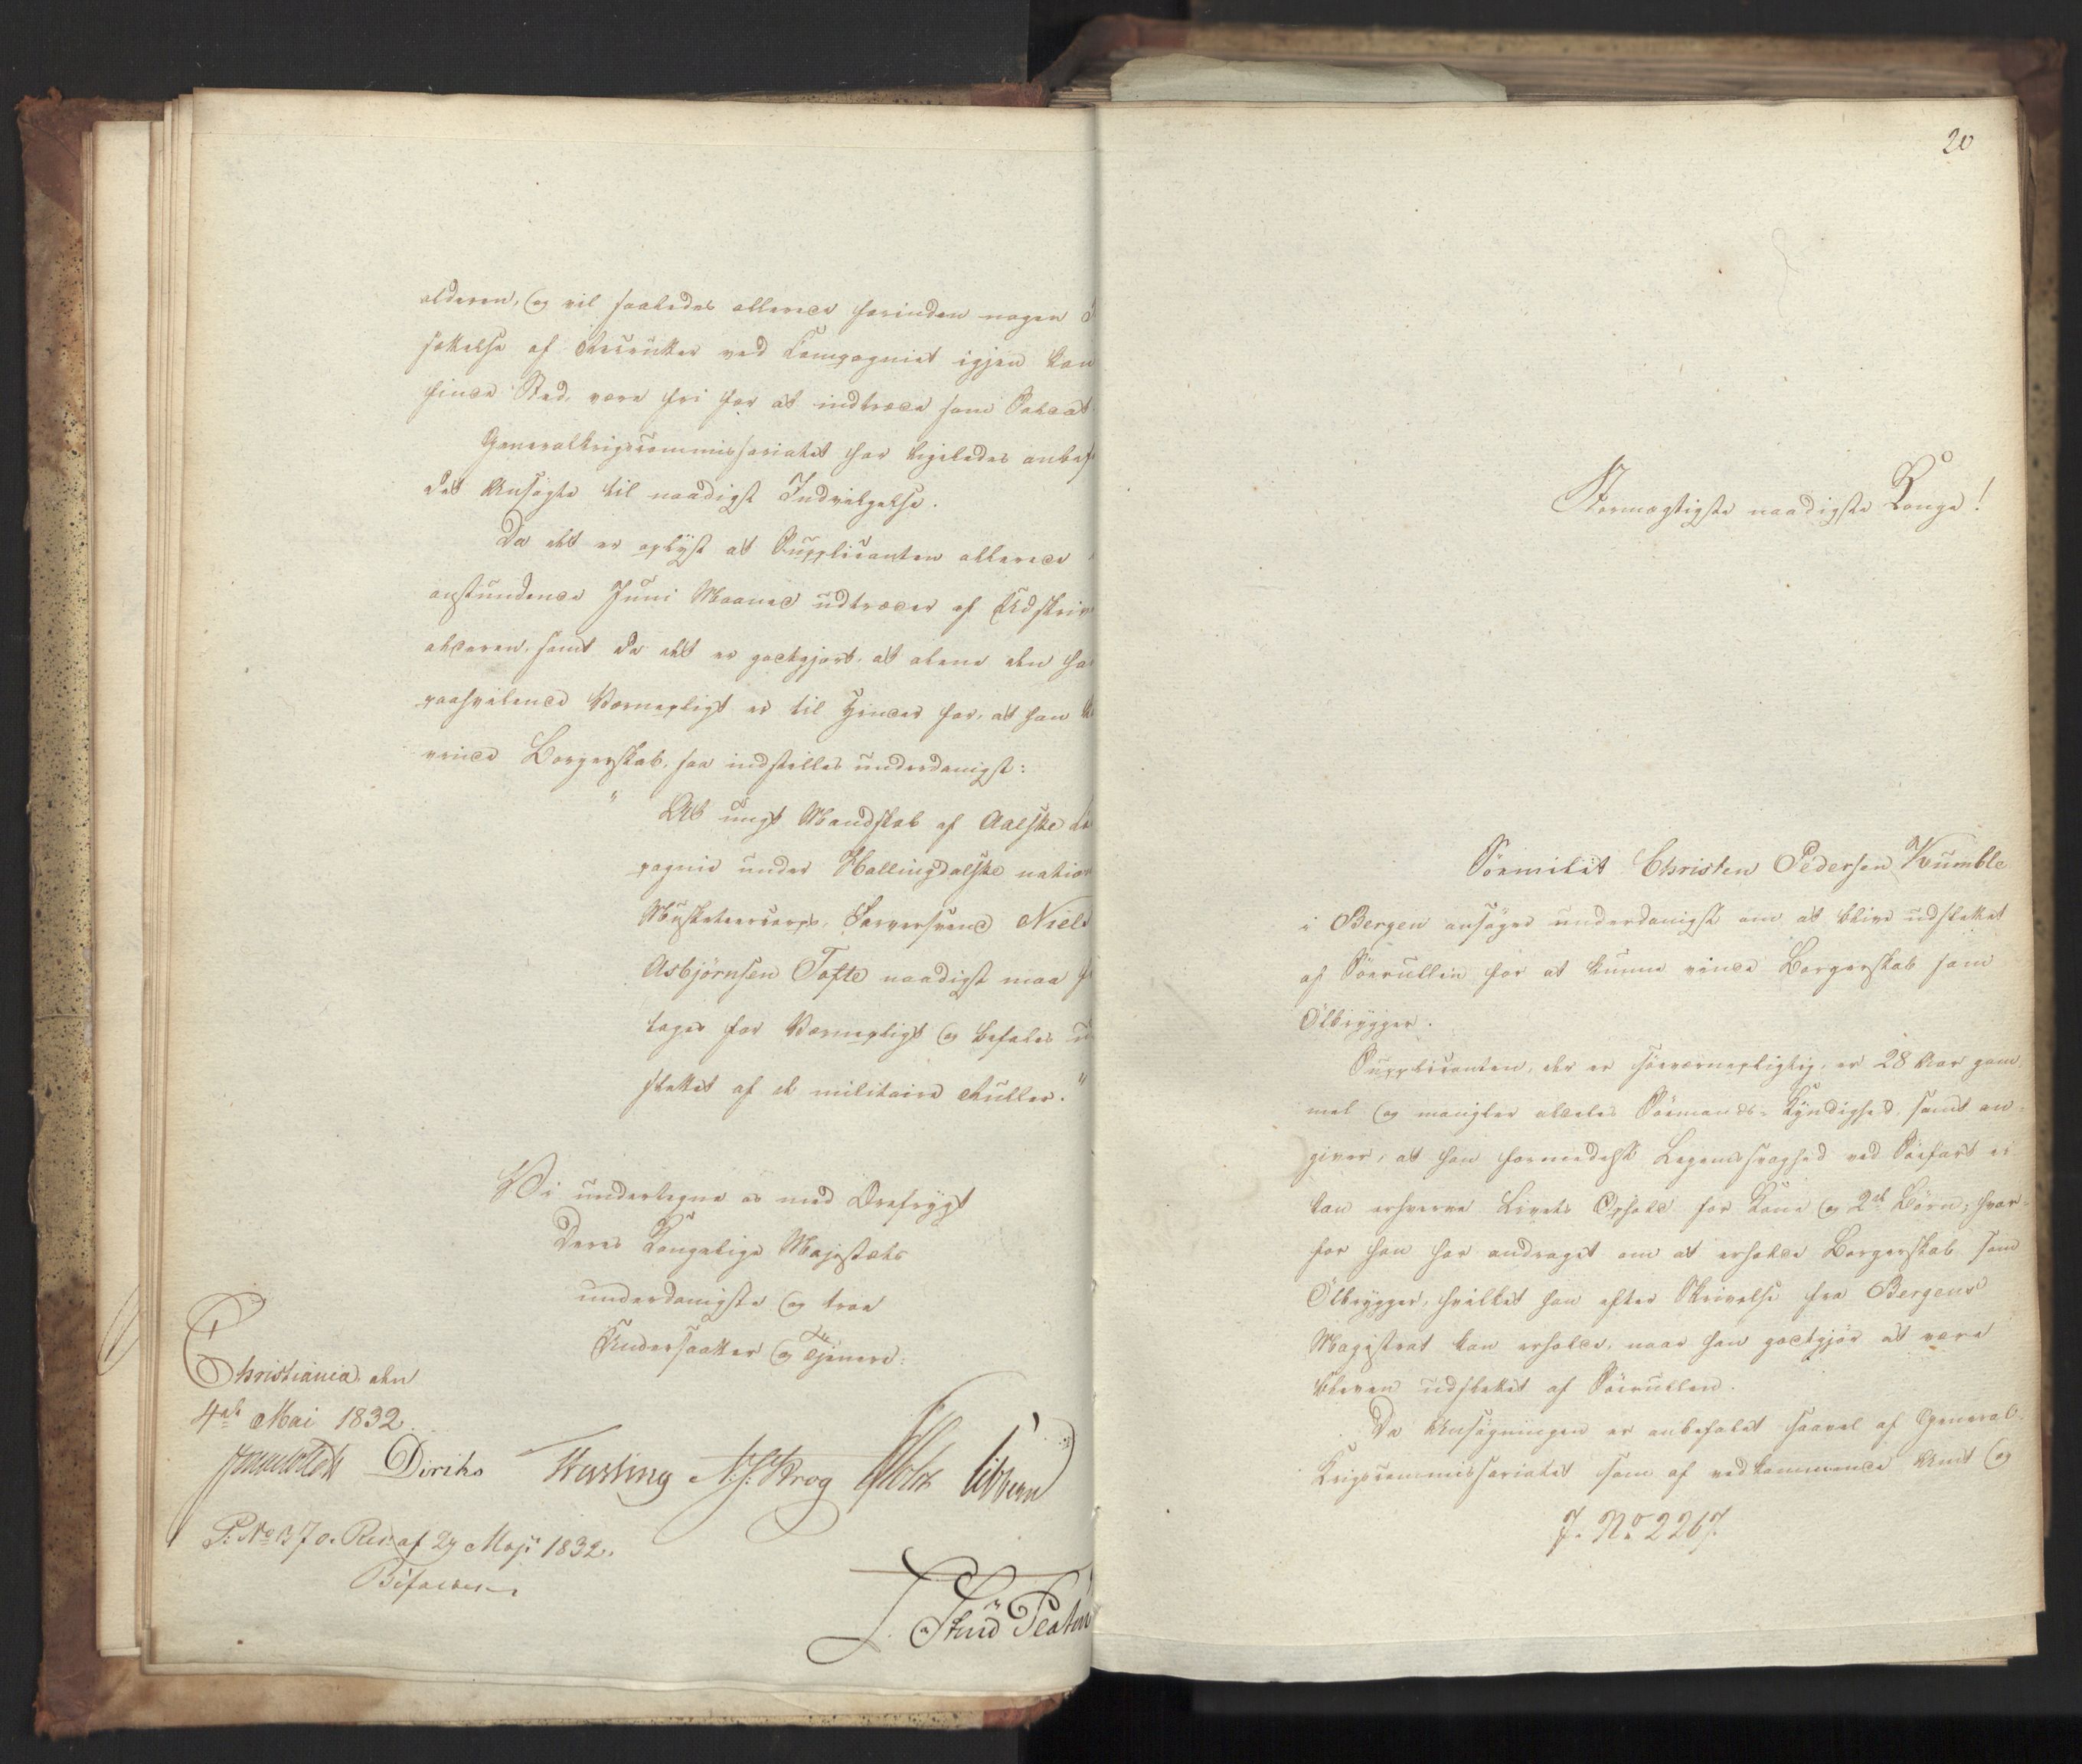 alderen, og vil saaledes allerede forinden nogen
sættelse af Recruter ved Compagniet igjen kan
finde Sted, være fri for at indtræde som Soldat.
Generalkrigscommissariatet har ligeledes anbef
det Ansøgte til naadigst Indvilgelse.
Da det er oplyst at Supplicanten allerede
anstundende Juni Maaned udtræder af Udskriv
alderen, samt da det er godtgjort, at alene den ha
paahvilende Værnepligt er til Hinder for, at han
vinde Borgerskab, saa indstilles underdanigst:
" At ungt Mandskab af Aalske
pagnie under Hallingdalske nation
Musketeercorps, Farversvend Niels
Asbjørnsen Tofte naadigst maa
tages for Værnepligt og befales u
slettet af de militaire Ruller."
Vi undertegne os med Ærefrygt
Deres Kongelige Majestæts
underdanigste og troe
Undersaatter og Tjenere:
Christiania, den
4de Mai 1832.
Diriks N. J. Krog Holst Sibbern
P: No 370. Res: af 29 Maji 1832.
Bifaldes
20
Stormægtigste naadigste Konge!
Søemilit Christen Pedersen Kumble
i Bergen ansøger underdanigst om at blive udslettet
af Søerullen for at kunne vinde Borgerskab som
Ølbrygger.
Supplicanten, der er søeværnepligtig, er 28 Aar gam
mel og mangler aldeles Sømands-Kyndighed, samt an-
giver, at han formedelst Legemssvaghed ved Søefart ei
kan erhverve Livets Ophold for Kone og 2de Børn; hvor-
for han har andraget om at erholde Borgerskab som
Ølbrygger, hvilket han efter Skrivelse fra Bergens
Magistrat kan erholde, naar han godtgjør at være
bleven udslettet af Søerullen.
Da Ansøgningen er anbefalet saavel af General-
Krigscommissariatet som af vedkommende Amt og
J. No 2267.